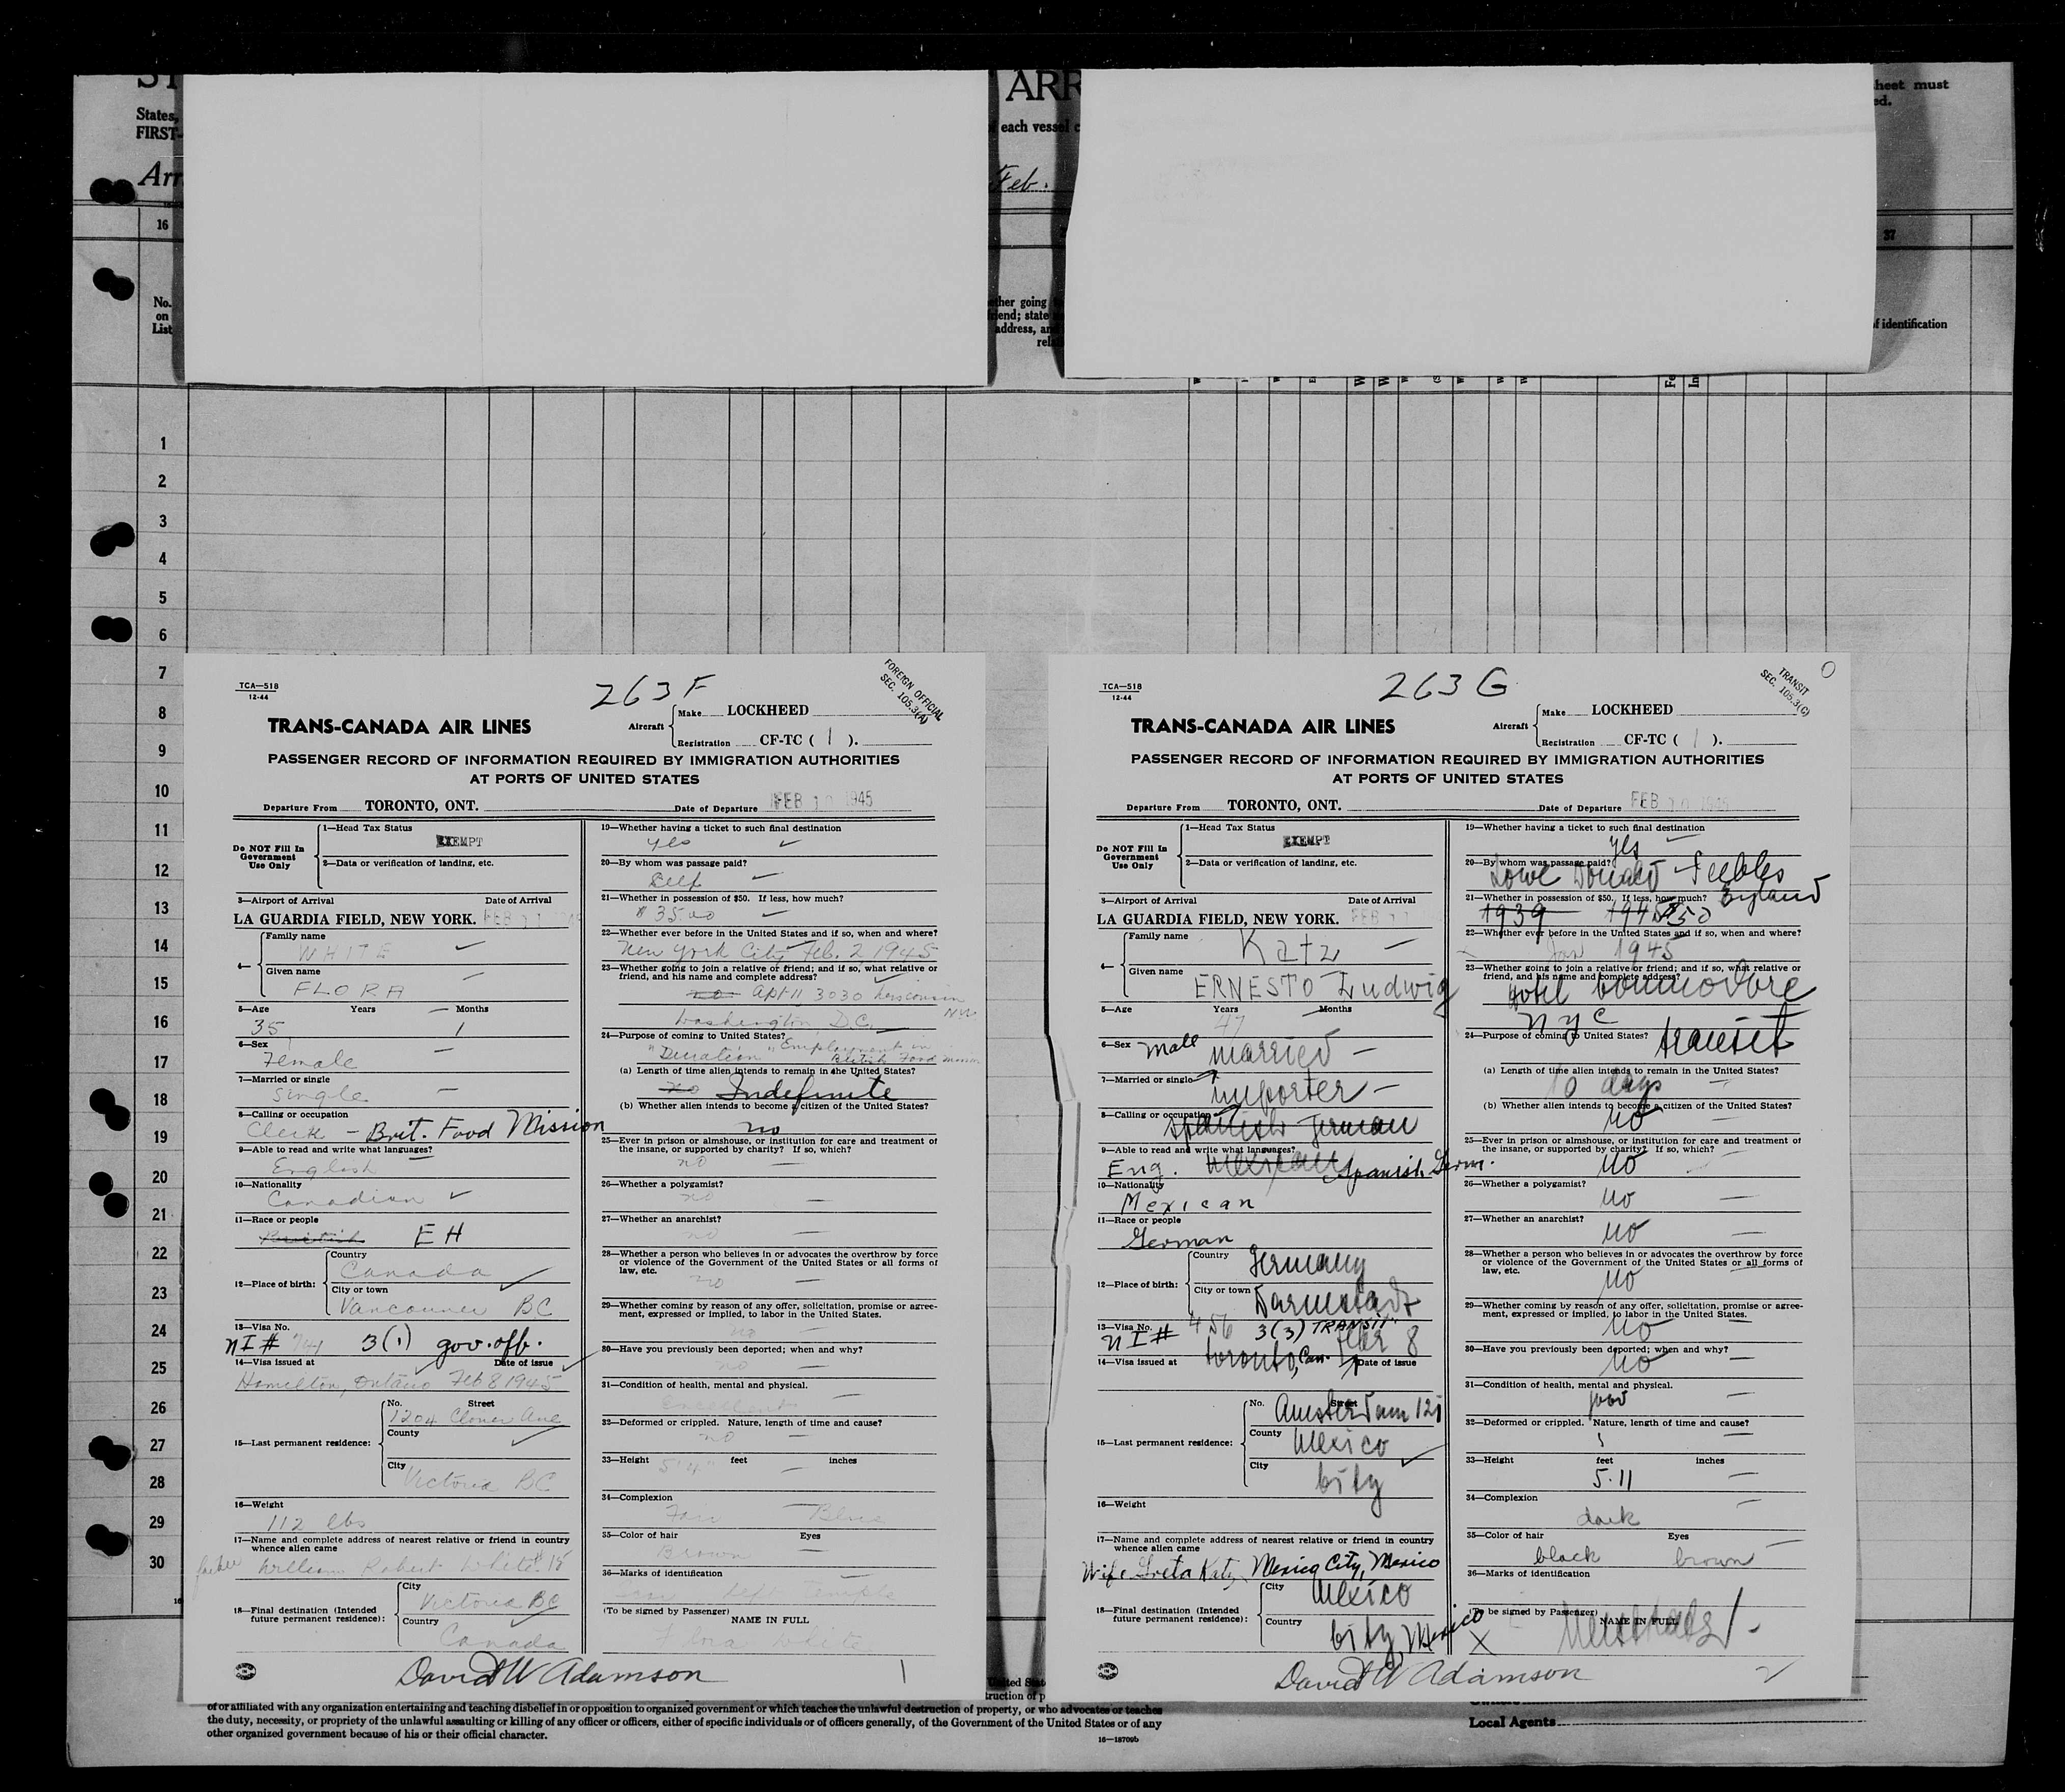 ARR
States,
FIRST-
of each vessel
sheet must
ed.
Arr
Feb.
16
37
No.
on
List
ether going
friend; state
address, and
of identification
1
2
3
4
5
6
7
8
9
10
11
12
13
14
15
16
17
18
19
20
21
22
23
24
25
26
27
28
29
30
TCA—518
12-44
263 F
FOREIGN OFFICIAL
SEC. 105.3(A)
TRANS-CANADA AIR LINES
Aircraft
Make LOCKHEED
Registration CF-TC ( 1 ).
PASSENGER RECORD OF INFORMATION REQUIRED BY IMMIGRATION AUTHORITIES
AT PORTS OF UNITED STATES
Departure From TORONTO, ONT. Date of Departure FEB 10 1945
Do NOT Fill In
Government
Use Only
1—Head Tax Status
EXEMPT
2—Data or verification of landing, etc.
3—Airport of Arrival Date of Arrival
LA GUARDIA FIELD, NEW YORK. FEB 11
4— Family name
WHITE
Given name
FLORA
5—Age Years Months
35 1
6—Sex
Female
7—Married or single
Single
8—Calling or occupation
Clerk – Brit. Food Mission
9—Able to read and write what languages?
English
10—Nationality
Canadian
11—Race or people
British EH
12—Place of birth:
Country
Canada
City or town
Vancouver BC
13—Visa No.
NI # 741 3(1) gov. off.
14—Visa issued at Date of issue
Hamilton, Ontario Feb 8 1945
15—Last permanent residence:
No. Street
1204 Ave
County
City
Victoria BC
16—Weight
112 lbs
17—Name and complete address of nearest relative or friend in country
whence alien came
father William Robert White
18—Final destination (Intended
future permanent residence):
City
Victoria BC
Country
Canada
19—Whether having a ticket to such final destination
yes
20—By whom was passage paid?
Self
21—Whether in possession of $50. If less, how much?
$35.00
22—Whether ever before in the United States and if so, when and where?
New York City Feb. 2 1945
23—Whether going to join a relative or friend; and if so, what relative or
friend, and his name and complete address?
no Apt 11 3030 Wisconsin
Washington, D.C. NW
24—Purpose of coming to United States?
"Duration" Employment in
British Food Mission
(a) Length of time alien intends to remain in the United States?
no Indefinite
(b) Whether alien intends to become a citizen of the United States?
no
25—Ever in prison or almshouse, or institution for care and treatment of
the insane, or supported by charity? If so, which?
no
26—Whether a polygamist?
no
27—Whether an anarchist?
no
28—Whether a person who believes in or advocates the overthrow by force
or violence of the Government of the United States or all forms of
law, etc.
no
29—Whether coming by reason of any offer, solicitation, promise or agree-
ment, expressed or implied, to labor in the United States.
no
30—Have you previously been deported; when and why?
no
31—Condition of health, mental and physical.
Excellent
32—Deformed or crippled. Nature, length of time and cause?
no
33—Height feet inches
5'4"
34—Complexion
Fair Blue
35—Color of hair Eyes
Brown
36—Marks of identification
left temple
(To be signed by Passenger) NAME IN FULL
Flora White
David W Adamson
1
TCA—518
12-44
263 G
TRANSIT
SEC. 105.3(C)
TRANS-CANADA AIR LINES
Aircraft
Make LOCKHEED
Registration CF-TC ( 1 ).
PASSENGER RECORD OF INFORMATION REQUIRED BY IMMIGRATION AUTHORITIES
AT PORTS OF UNITED STATES
Departure From TORONTO, ONT. Date of Departure FEB 10 1945
Do NOT Fill In
Government
Use Only
1—Head Tax Status
EXEMPT
2—Data or verification of landing, etc.
3—Airport of Arrival Date of Arrival
LA GUARDIA FIELD, NEW YORK. FEB 11
4— Family name
Katz
Given name
ERNESTO Ludwig
5—Age Years Months
47
6—Sex Male married
7—Married or single
importer
8—Calling or occupation
Spanish German
9—Able to read and write what languages?
Eng. Mexican Spanish Germ.
10—Nationality
Mexican
11—Race or people
German
12—Place of birth:
Country
Germany
City or town
Darmstadt
13—Visa No.
NI # 456 3(3) TRANSIT
14—Visa issued at Date of issue
Toronto, Can. 8
15—Last permanent residence:
No. Street
Amsterdam 121
County
Mexico
City
City
16—Weight
17—Name and complete address of nearest relative or friend in country
whence alien came
Wife Greta Katz, Mexico City, Mexico
18—Final destination (Intended
future permanent residence):
City
Mexico
Country
City Mexico
19—Whether having a ticket to such final destination
yes
20—By whom was passage paid?
Lowe Donald Peebles
England
21—Whether in possession of $50. If less, how much?
1939 1945 $50
22—Whether ever before in the United States and if so, when and where?
Jan 1945
23—Whether going to join a relative or friend; and if so, what relative or
friend, and his name and complete address?
Hotel Commodore
NYC
24—Purpose of coming to United States?
transit
(a) Length of time alien intends to remain in the United States?
10 days
(b) Whether alien intends to become a citizen of the United States?
no
25—Ever in prison or almshouse, or institution for care and treatment of
the insane, or supported by charity? If so, which?
no
26—Whether a polygamist?
no
27—Whether an anarchist?
no
28—Whether a person who believes in or advocates the overthrow by force
or violence of the Government of the United States or all forms of
law, etc.
no
29—Whether coming by reason of any offer, solicitation, promise or agree-
ment, expressed or implied, to labor in the United States.
no
30—Have you previously been deported; when and why?
no
31—Condition of health, mental and physical.
good
32—Deformed or crippled. Nature, length of time and cause?
33—Height feet inches
5.11
34—Complexion
dark
35—Color of hair Eyes
black brown
36—Marks of identification
(To be signed by Passenger) NAME IN FULL
X
David W Adamson
2
United States
of or affiliated with any organization entertaining and teaching disbelief in or opposition to organized government or which teaches the unlawful destruction of property, or who advocates or teaches
the duty, necessity, or propriety of the unlawful assaulting or killing of any officer or officers, either of specific individuals or of officers generally, of the Government of the United States or of any
other organized government because of his or their official character.
16—18709b
Local Agents